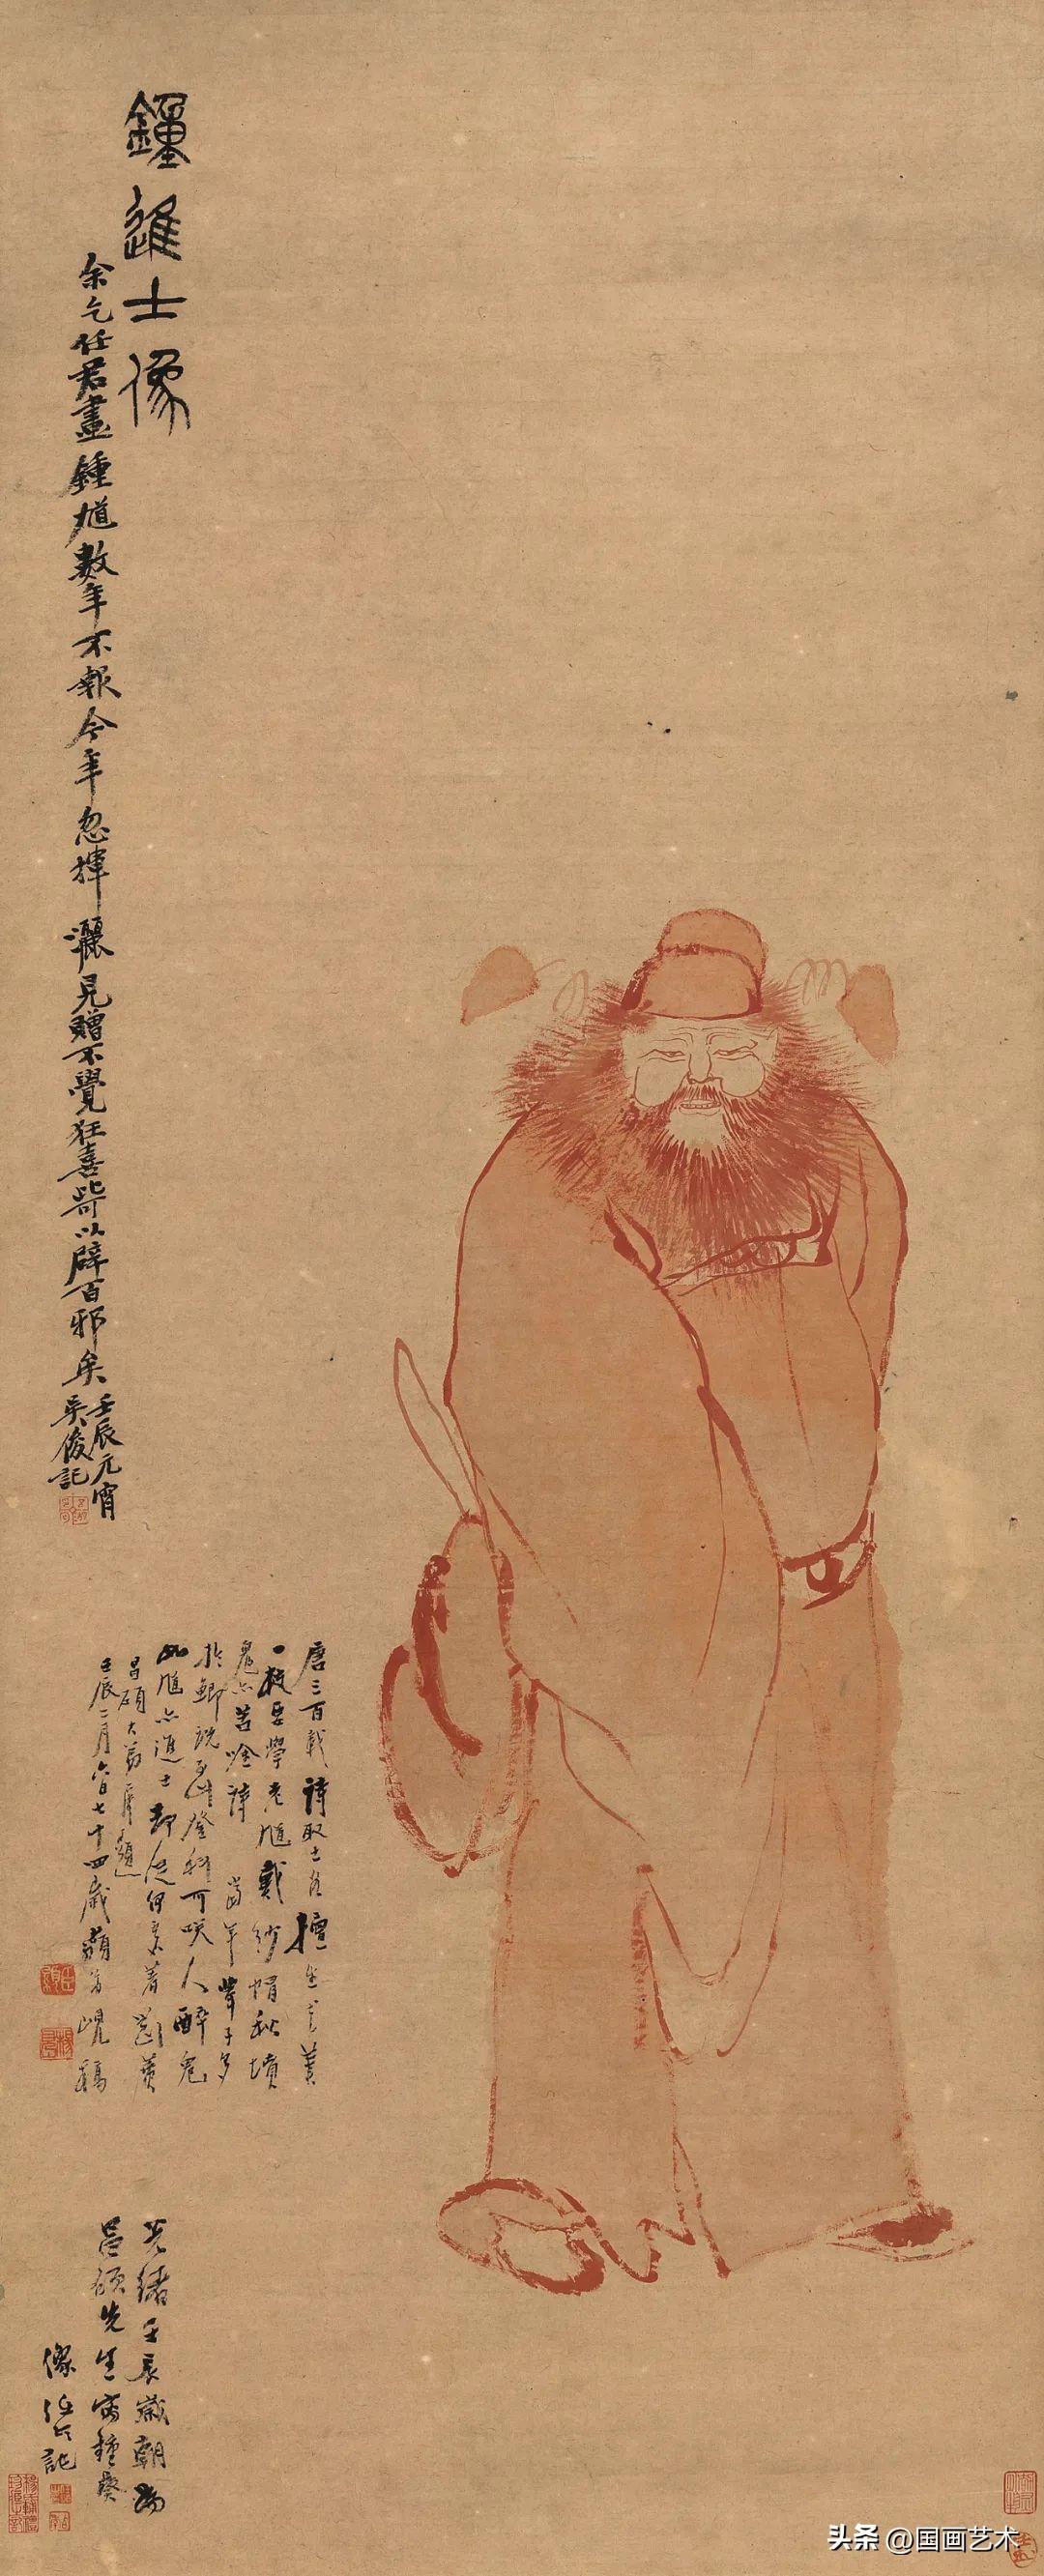 鐘進士像
余乞任君畫鍾馗數年不報今年忽揮灑見贈不覺狂喜此可以辟百邪矣
壬辰元宵
吳俊記
唐三百載詩取士名擅生之
一枝要學老馗戴紗帽秋墳
鬼亦苦唫詩 當年聱子多
於鯽說登科可咲人醉鬼
如馗亦進士却從何處着
昌碩大弟屬題
壬辰二月六日七十四歲藐翁峴稿
光緒壬辰歲朝為
昌碩先生寫鍾葵
像任記
头条 @国画艺术